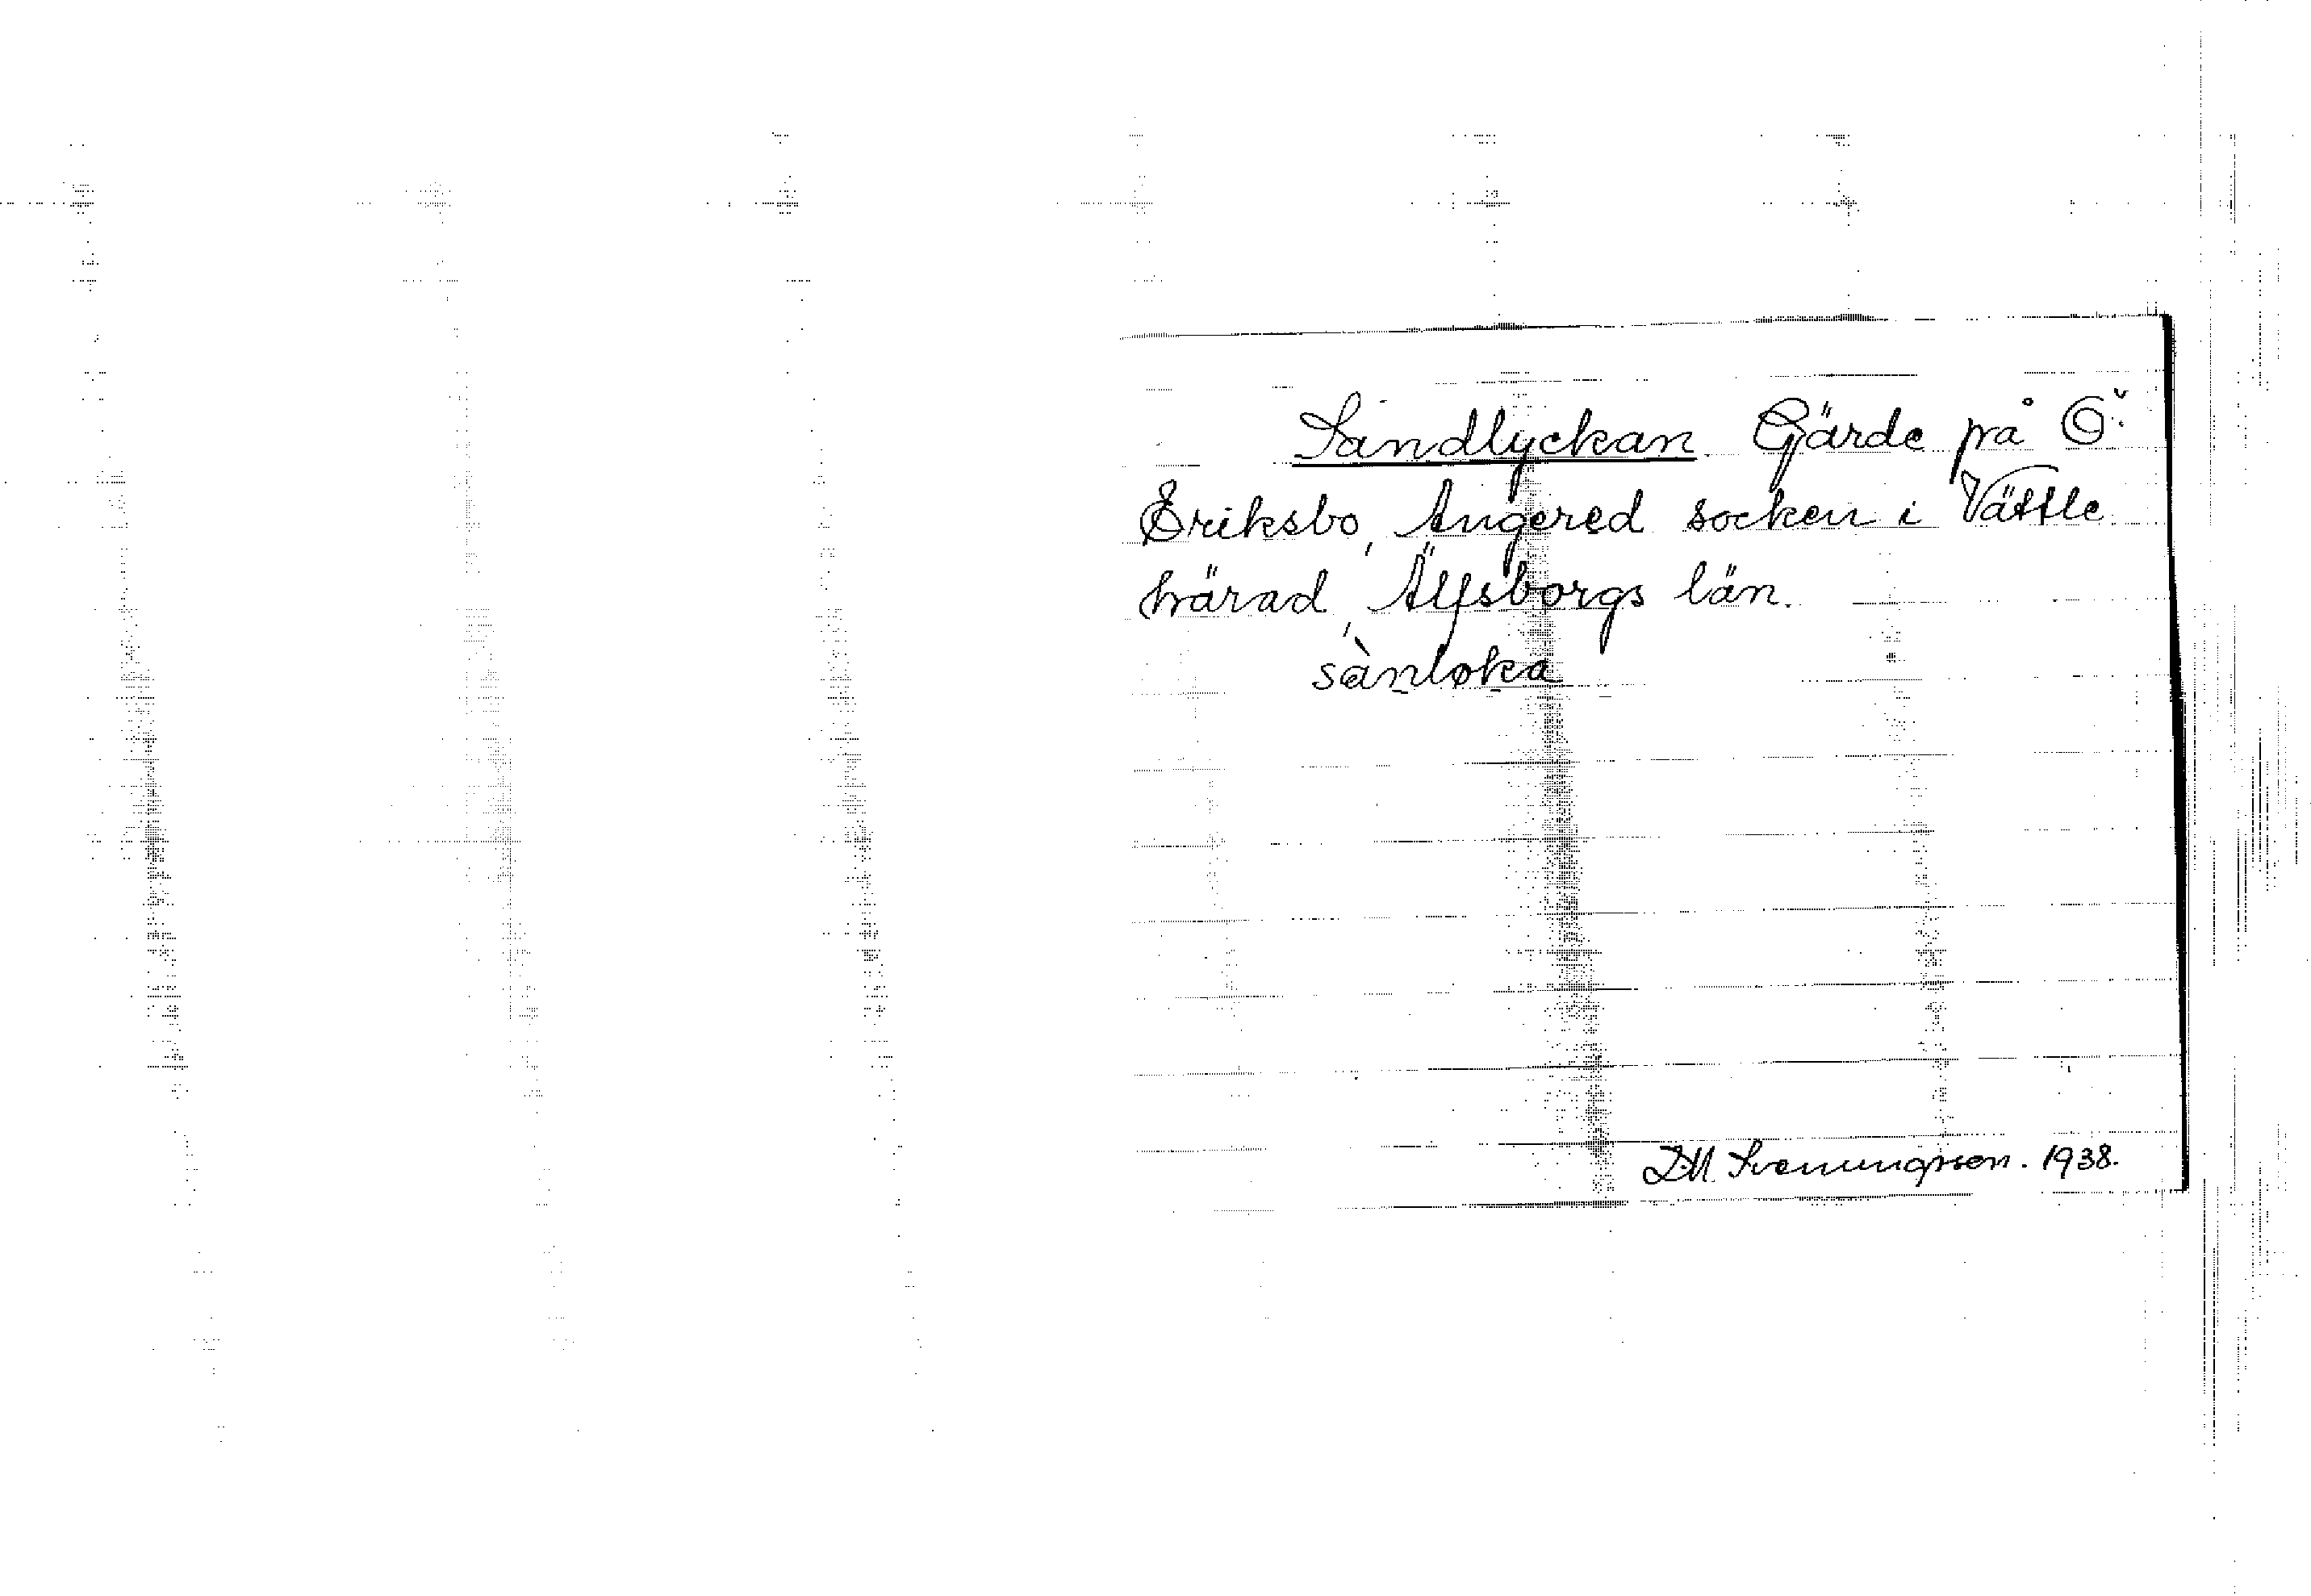 Sandlyckan Gärde på Ö.
Eriksbo, Angered socken i Vättle
härad, Älfsborgs län.
sànloka
D.M. Svenningsson. 1938.